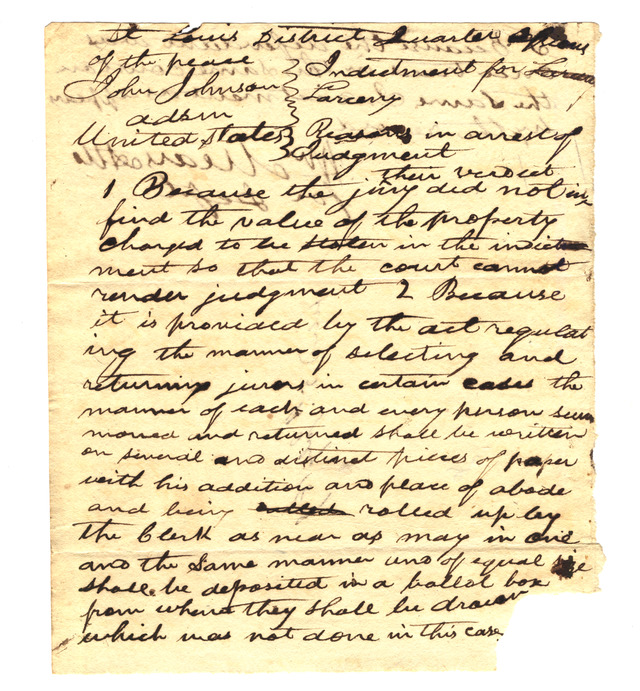 St Louis District Quarter Sessions
of the peace
John Johnson } Indictment for
adsm } Larceny
United States } Reasons in arrest of
Judgment
their verdict
1 Because the jury did not in
find the value of the property
charged to be stolen in the indict
ment so that the court cannot
render judgment 2 Because
it is provided by the act regulat
ing the manner of selecting and
returning jurors in certain cases the
manner of each and every person sum
moned and returned shall be written
on several and distinct pieces of paper
with his addition and place of abode
and being rolled up by
the Clerk as near as may in one
and the same manner and of equal size
shall be deposited in a ballot box
from whence they shall be drawn
which was not done in this case